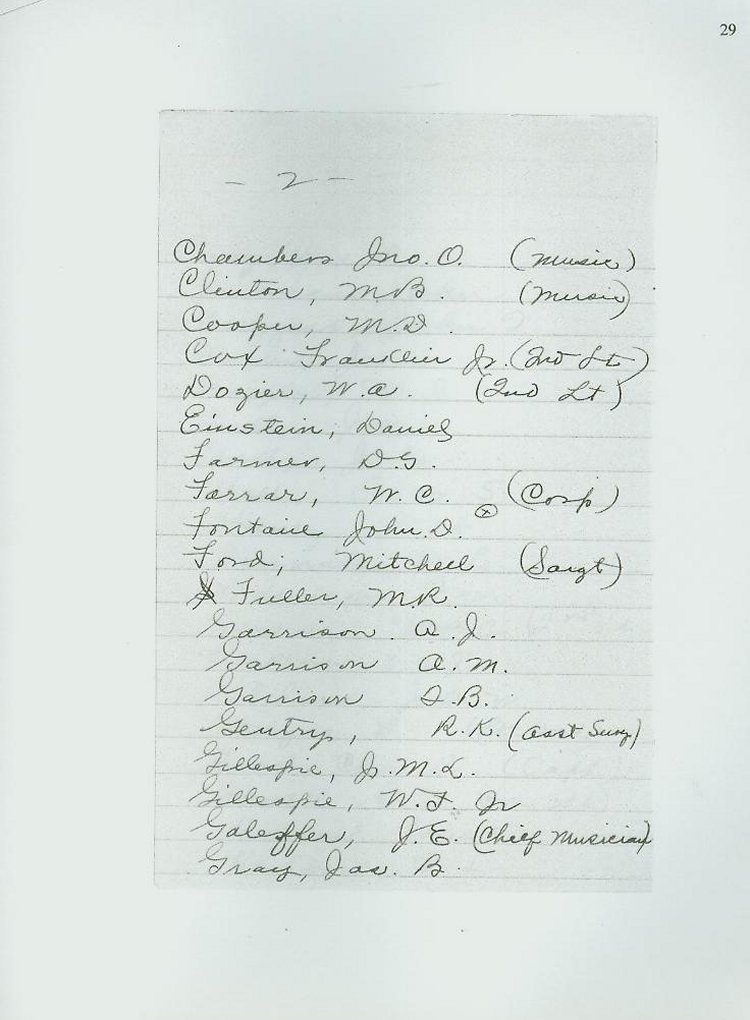 29
- 2 -
Chambers Jno. O. (Music)
Clinton, M B. (Music)
Cooper, M.D.
Cox Franklin Jr. (2nd Lt)
Dozier, W.A. (2nd Lt)
Einstein, Daniel
Farmer, D.G.
Farrar, W.C. (Corp)
Fontaine John D.
Ford, Mitchell (Sargt)
Fuller, M.R.
Garrison A.J.
Garrison A.M.
Garrison I.B.
Gentry, R.K. (Asst Surg)
Gillespie, J.M.L.
Gillespie, W.F. Jr
Galeffer, J.E. (Chief Musician)
Gray, Jas. B.